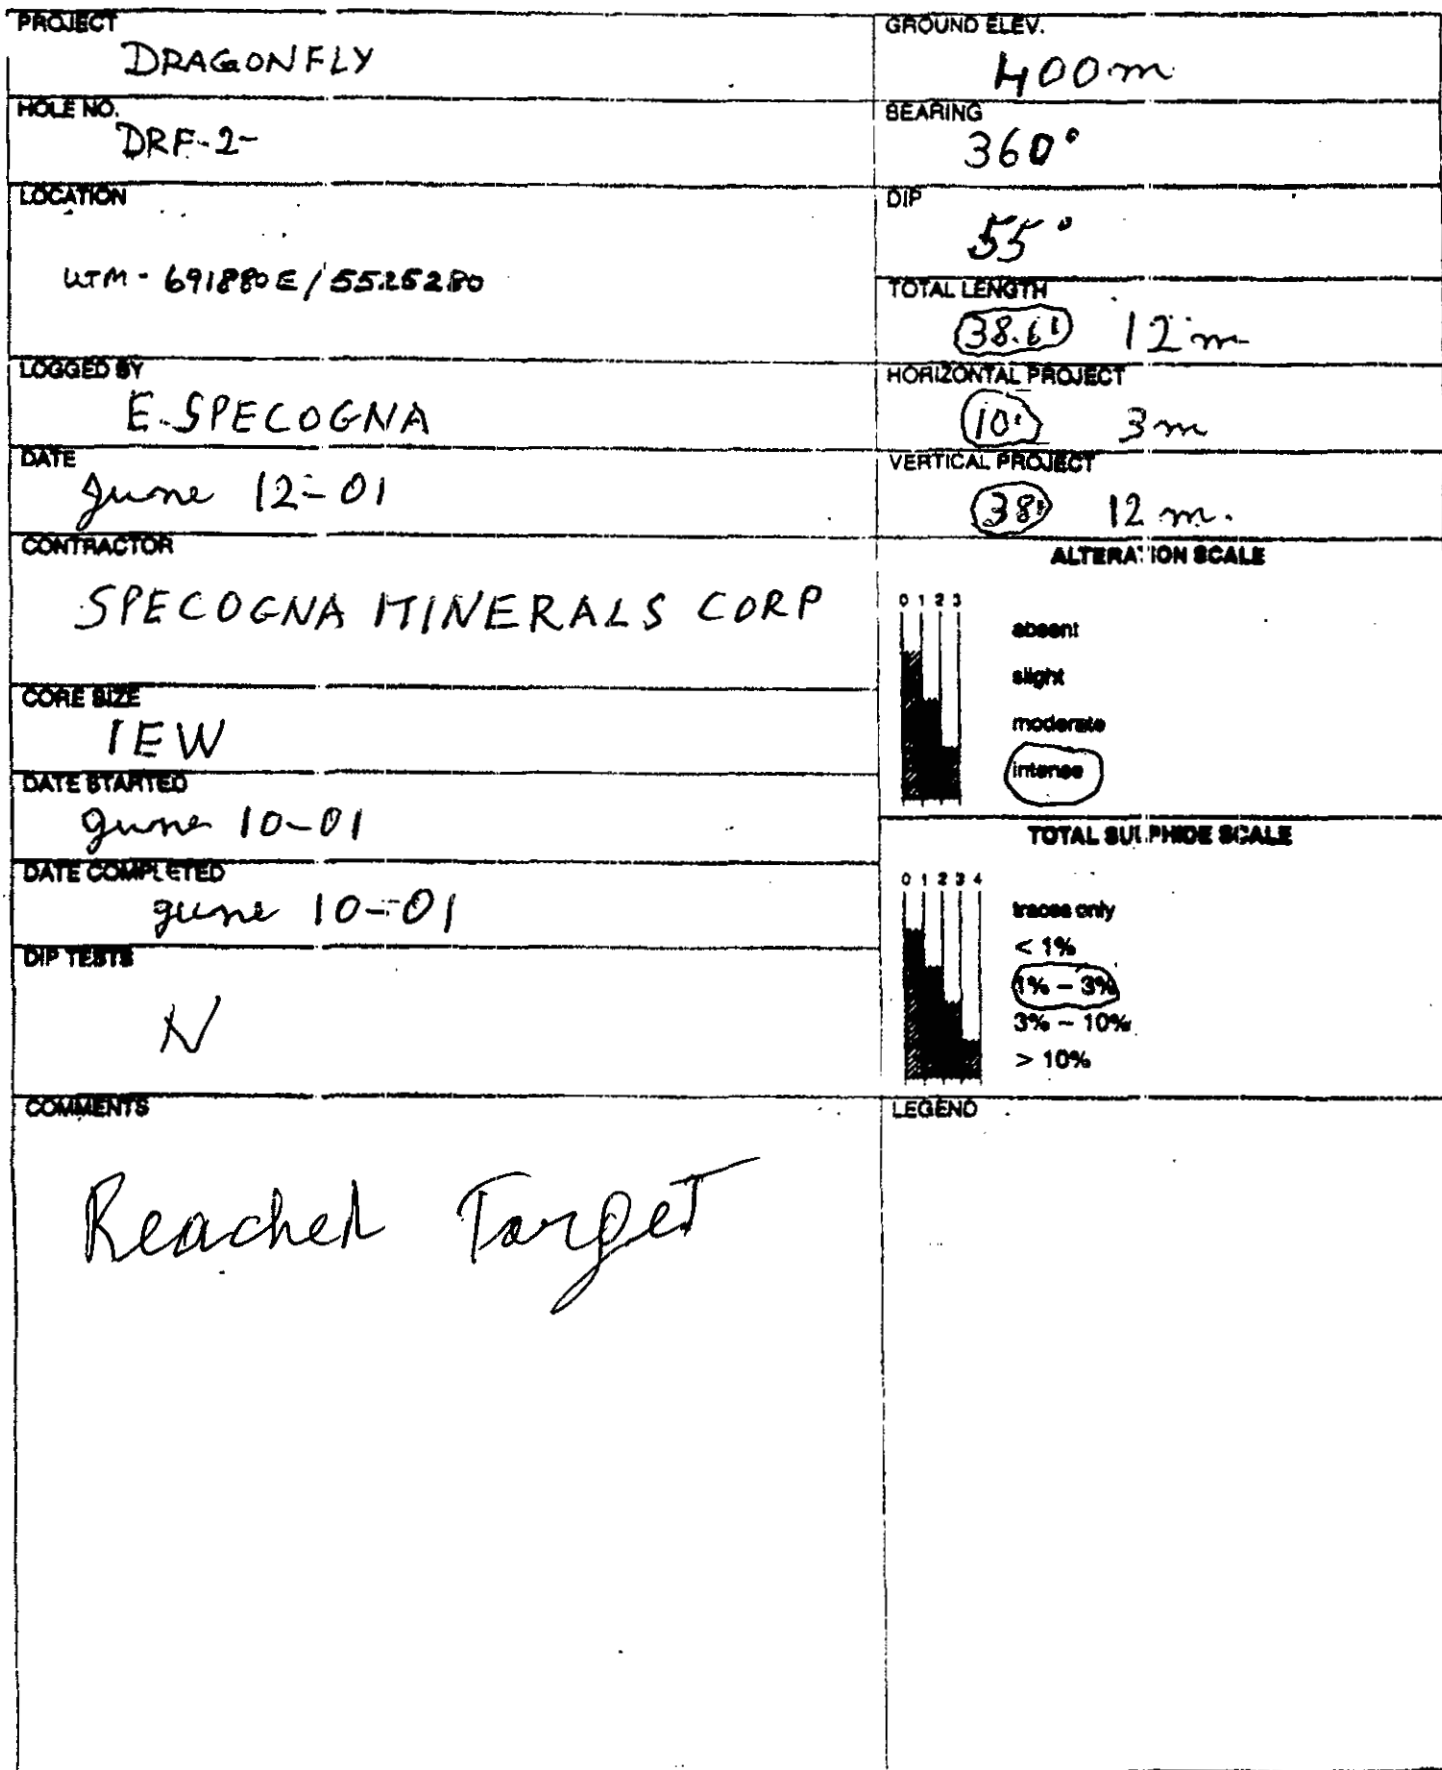 PROJECT
DRAGONFLY
HOLE NO.
DRF-2-
LOCATION
UTM - 691880E/5525280
LOGGED BY
E. SPECOGNA
DATE
June 12-01
CONTRACTOR
SPECOGNA MINERALS CORP
CORE SIZE
IEW
DATE STARTED
June 10-01
DATE COMPLETED
June 10-01
DIP TESTS
N
COMMENTS
Reached Target
GROUND ELEV.
400m
BEARING
360°
DIP
55°
TOTAL LENGTH
38.6' 12m
HORIZONTAL PROJECT
10' 3m
VERTICAL PROJECT
38' 12m.
ALTERATION SCALE
0 1 2 3
absent
slight
moderate
intense
TOTAL SULPHIDE SCALE
0 1 2 3 4
traces only
< 1%
1% – 3%
3% – 10%
> 10%
LEGEND